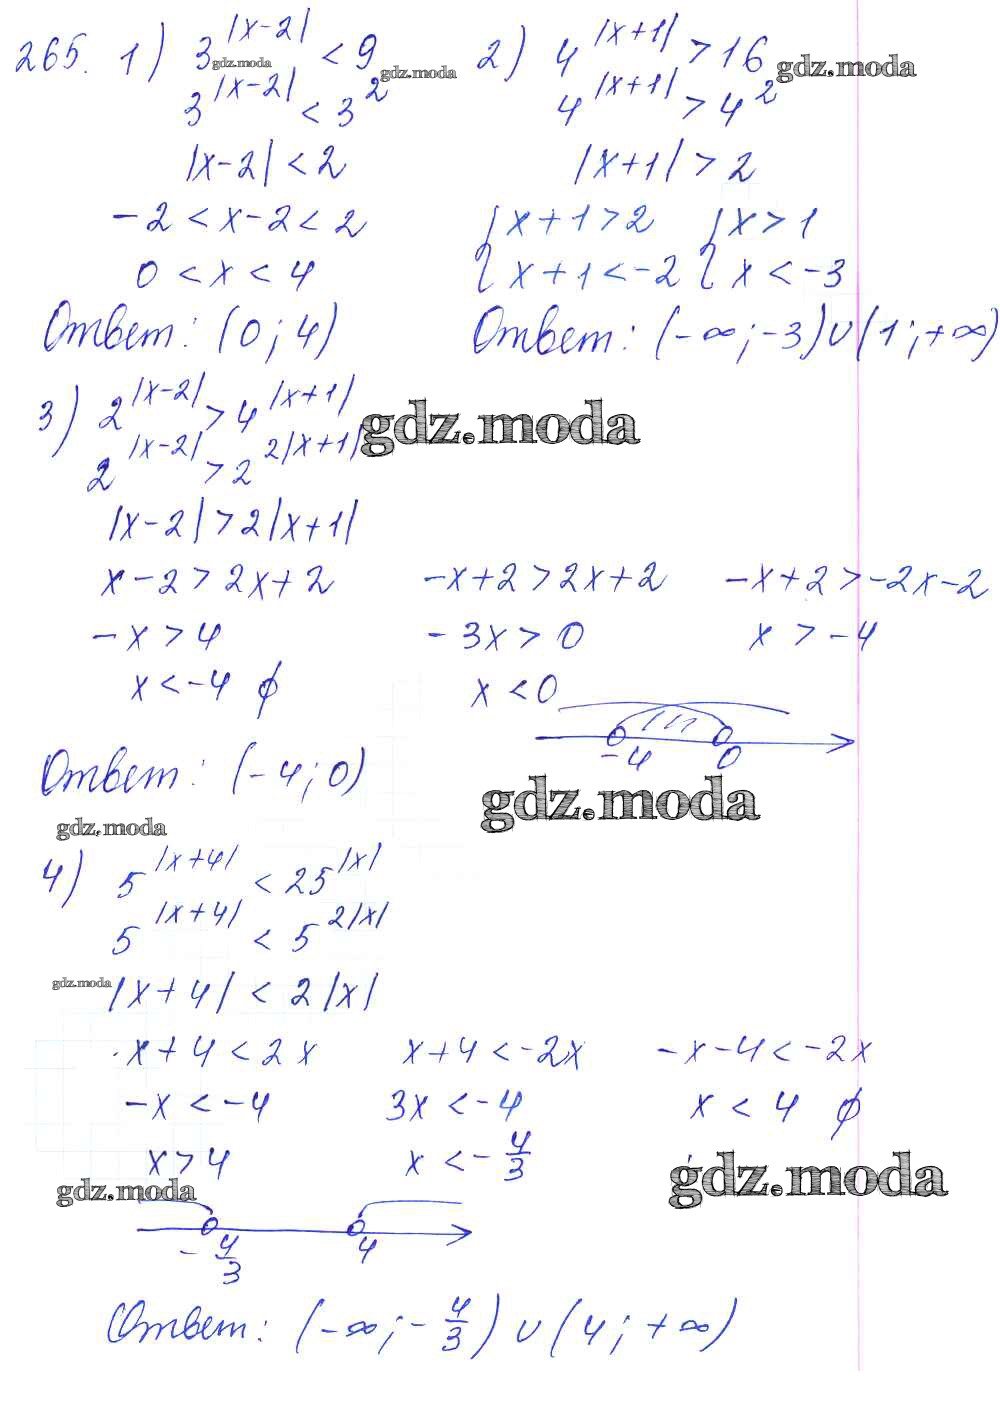 265. 1) 3^|x-2| < 9
3^|x-2| < 3^2
|x-2| < 2
-2 < x-2 < 2
0 < x < 4
Ответ: (0; 4)
2) 4^|x+1| > 16
4^|x+1| > 4^2
|x+1| > 2
{ x+1 > 2 { x > 1
x+1 < -2 x < -3
Ответ: (-∞; -3) ∪ (1; +∞)
3) 2^|x-2| > 4^|x+1|
2^|x-2| > 2^2|x+1|
|x-2| > 2|x+1|
x-2 > 2x+2 -x+2 > 2x+2 -x+2 > -2x-2
-x > 4 -3x > 0 x > -4
x < -4 ∅ x < 0
-4 0
Ответ: (-4; 0)
4) 5^|x+4| < 25^|x|
5^|x+4| < 5^2|x|
|x+4| < 2|x|
x+4 < 2x x+4 < -2x -x-4 < -2x
-x < -4 3x < -4 x < 4 ∅
x > 4 x < -4/3
-4/3 4
Ответ: (-∞; -4/3) ∪ (4; +∞)
gdz.moda
gdz.moda
gdz.moda
gdz.moda
gdz.moda
gdz.moda
gdz.moda
gdz.moda
gdz.moda